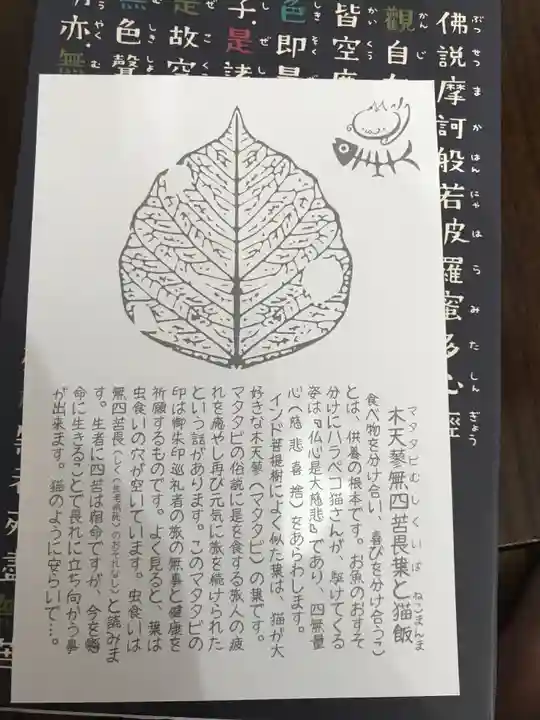 佛説摩訶般若波羅蜜多心經
ぶっせつまかはんにゃはらみたしんぎょう
觀自
かんじ
皆空度
かいくう
色即是
しきそくぜ
子是諸
しぜ
是故空
ぜこくう
無色聲
むしきしょう
亦無
やくむ
木天蓼無四苦畏葉と猫飯
マタタビむしくいばねこまんま
食べ物を分け合い、喜びを分け合うこ
とは、供養の根本です。お魚のおすそ
分けにハラペコ猫さんが、駆けてくる
姿は『仏心是大慈悲』であり、四無量
心(慈悲喜捨)をあらわします。
インド菩提樹によく似た葉は、猫が大
好きな木天蓼(マタタビ)の葉です。
マタタビの俗説に是を食する旅人の疲
れを癒やし再び元気に旅を続けられた
という話があります。このマタタビの
印は御朱印巡礼者の旅の無事と健康を
祈願するものです。よく見ると、葉は
虫食いの穴が空いています。虫食いは
無四苦畏(しく(生老病死)のおそれなし)と読みま
す。生者に四苦は宿命ですが、今を
命に生きることで畏れに立ち向かう事
が出来ます。猫のように安らいで…。